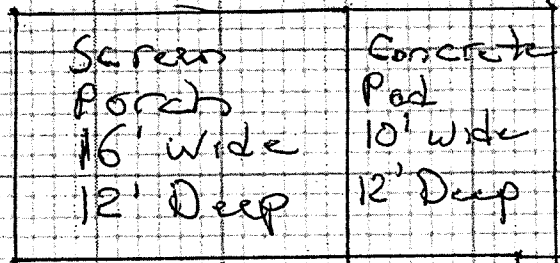 Screen
Porch
16' Wide
12' Deep
Concrete
Pad
10' Wide
12' Deep